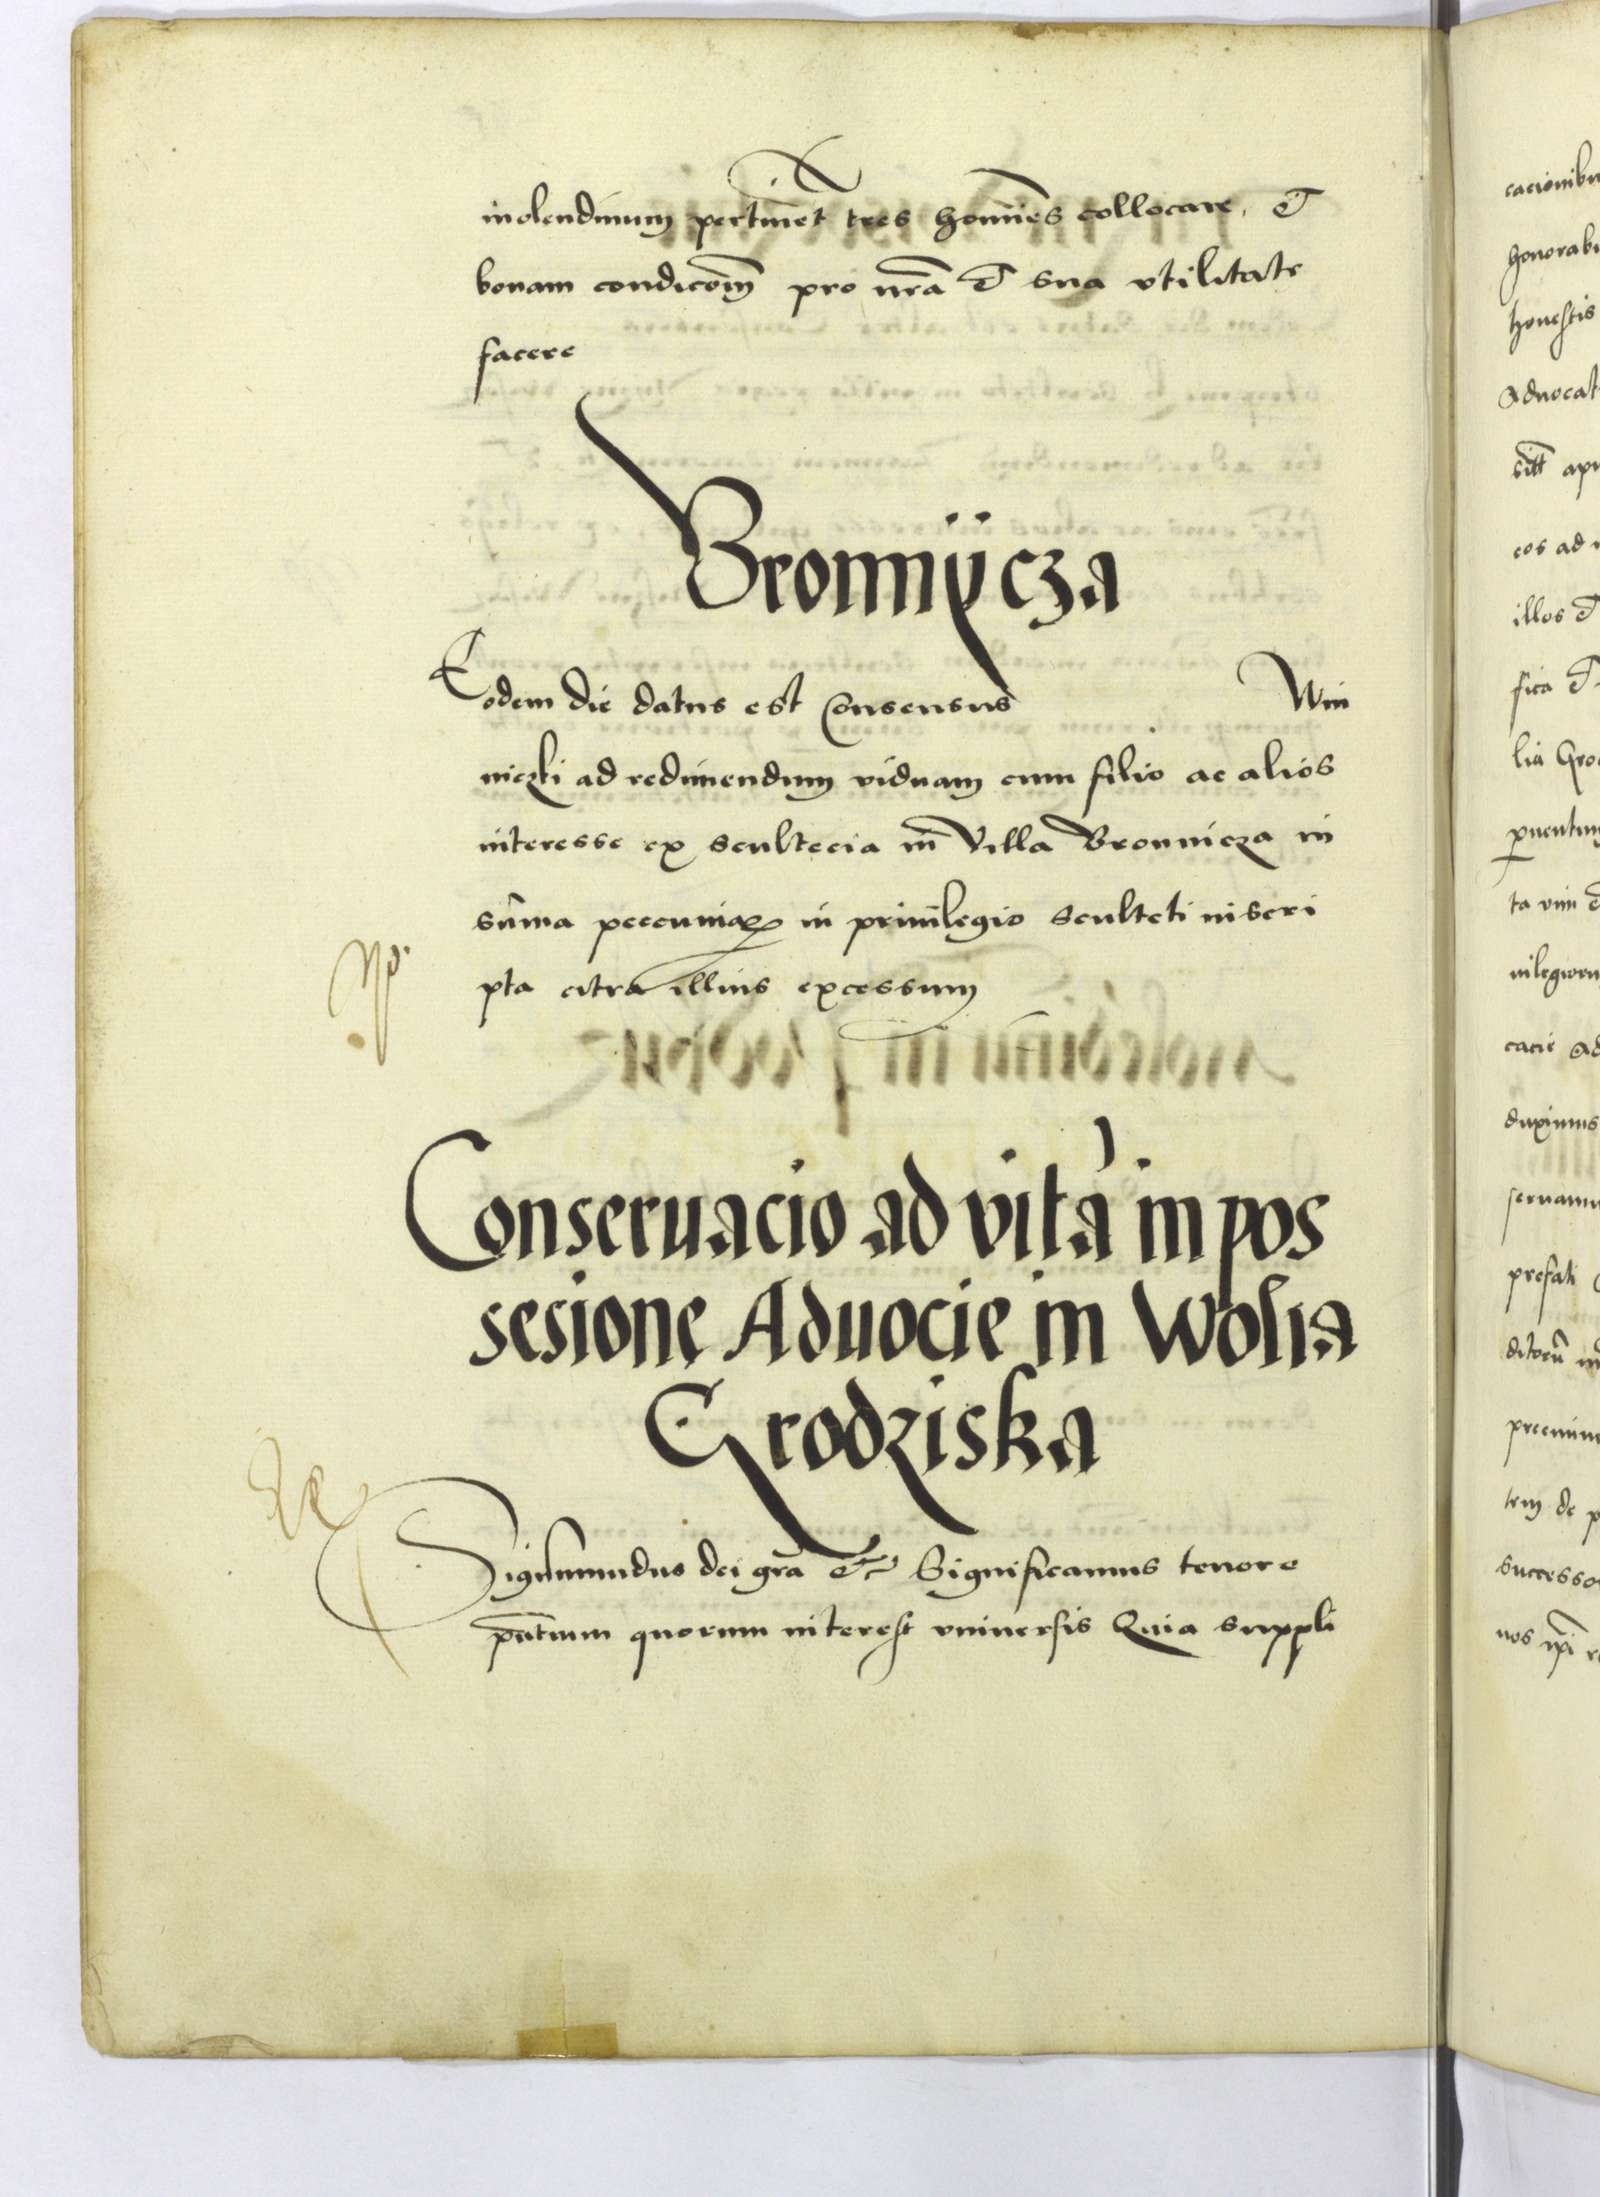 molendinum pertin̄et tres homīes collocare, et
bonam condicōm̄ pro nr̄a et sua vtilitate
facere
Bronnÿcza
Eodem die datus est Consensus Win
niczki ad redimendum viduam cum filio ac alios
interesse ex scultecia in Villa Bronnicza in
sūma peccuniaꝝ in priuilegio sculteti inscri
pta citra illius excessum
Conseruacio ad vitā in pos
sesione Aduocie in Wolia
Grodziska
Sigismundus dei gr̄a etc Significamus tenore
pn̄tium quorum interest vniuersis Quia suppli
cacionibu
honorabi
honestis
Aduocat
apu
eos ad
illos et
fica et
lia Gro
ꝑuentum
ta vim
uilegiorum
cacie ad
duximus
seruamu
prefati
ditorū
preemin
tem de p
successo
nos